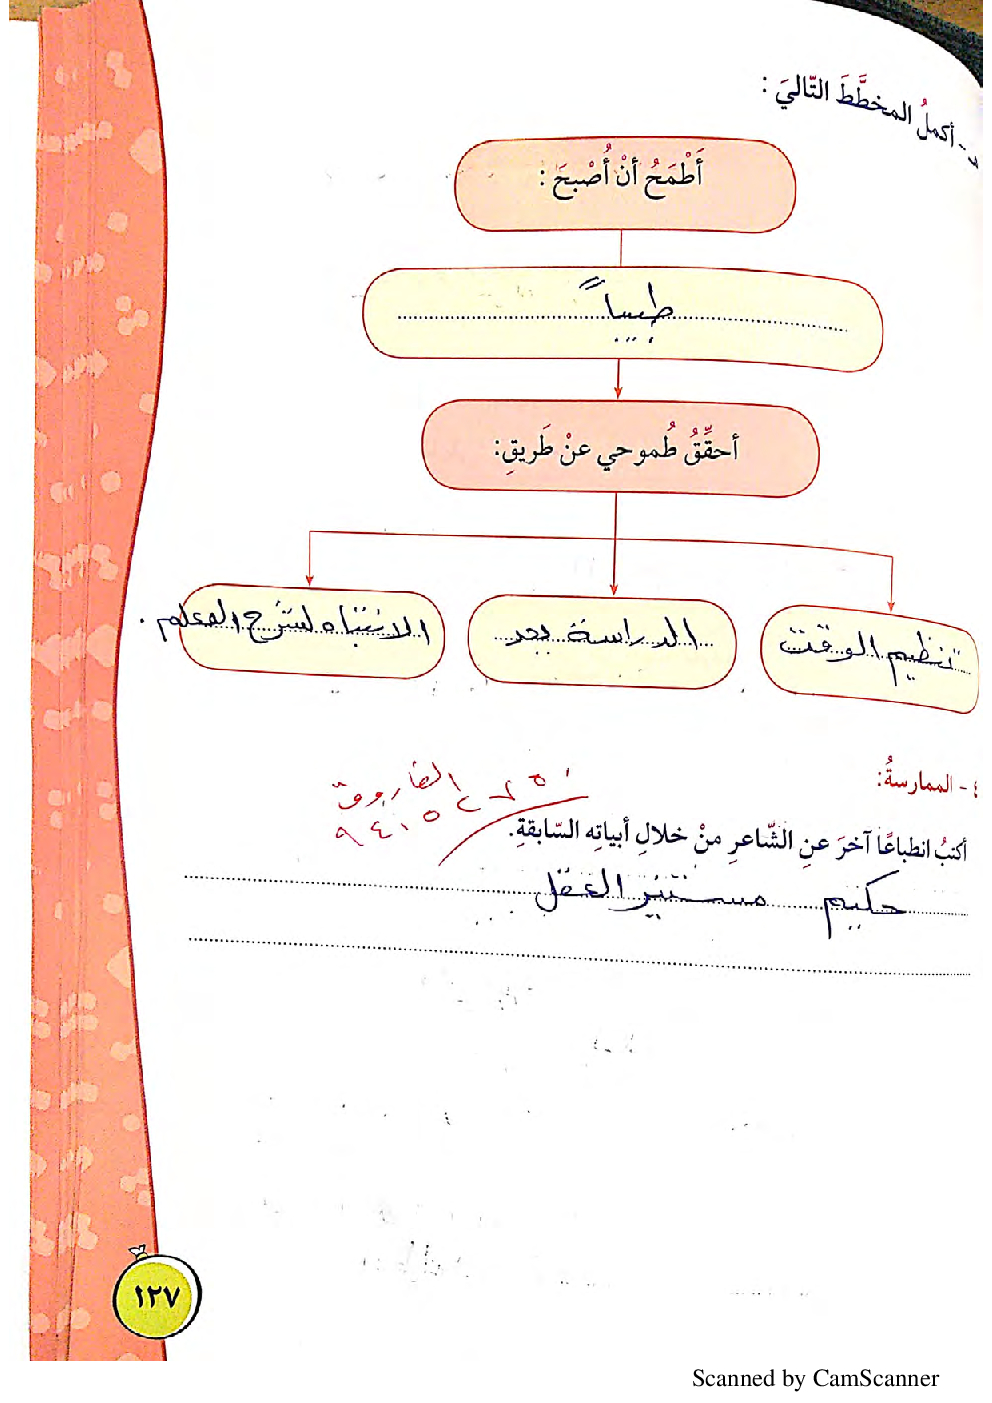 - أكملُ المخطَّطَ التّاليَ :
أَطْمَحُ أنْ أُصْبحَ :
طبيباً
أحقِّقُ طُموحي عنْ طَريقِ:
تنظيم الوقت
الدراسة بجد
الانتباه لشرح المعلم .
٤ - الممارسةُ:
الفاروق
أكتبُ انطباعًا آخرَ عنِ الشّاعرِ منْ خلالِ أبياتِه السّابقةِ.
حكيم مستنير العقل
١٢٧
Scanned by CamScanner